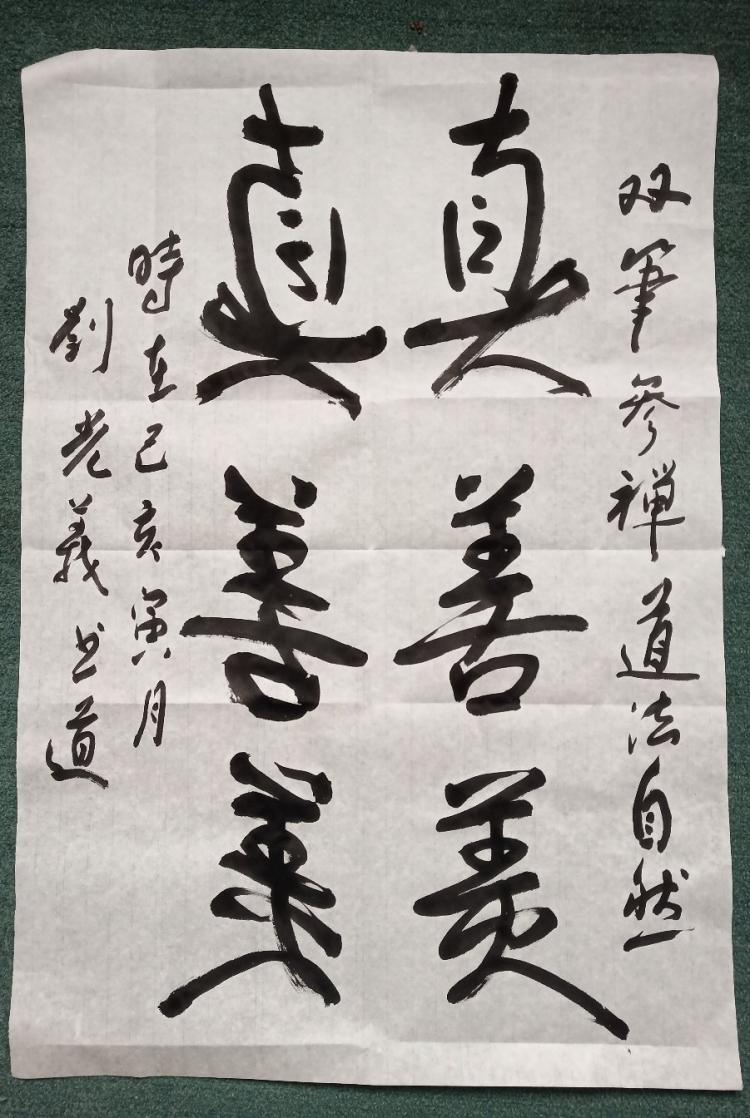 双筆参禅道法自然
真善美
真善美
時在己亥寅月
劉光義书道